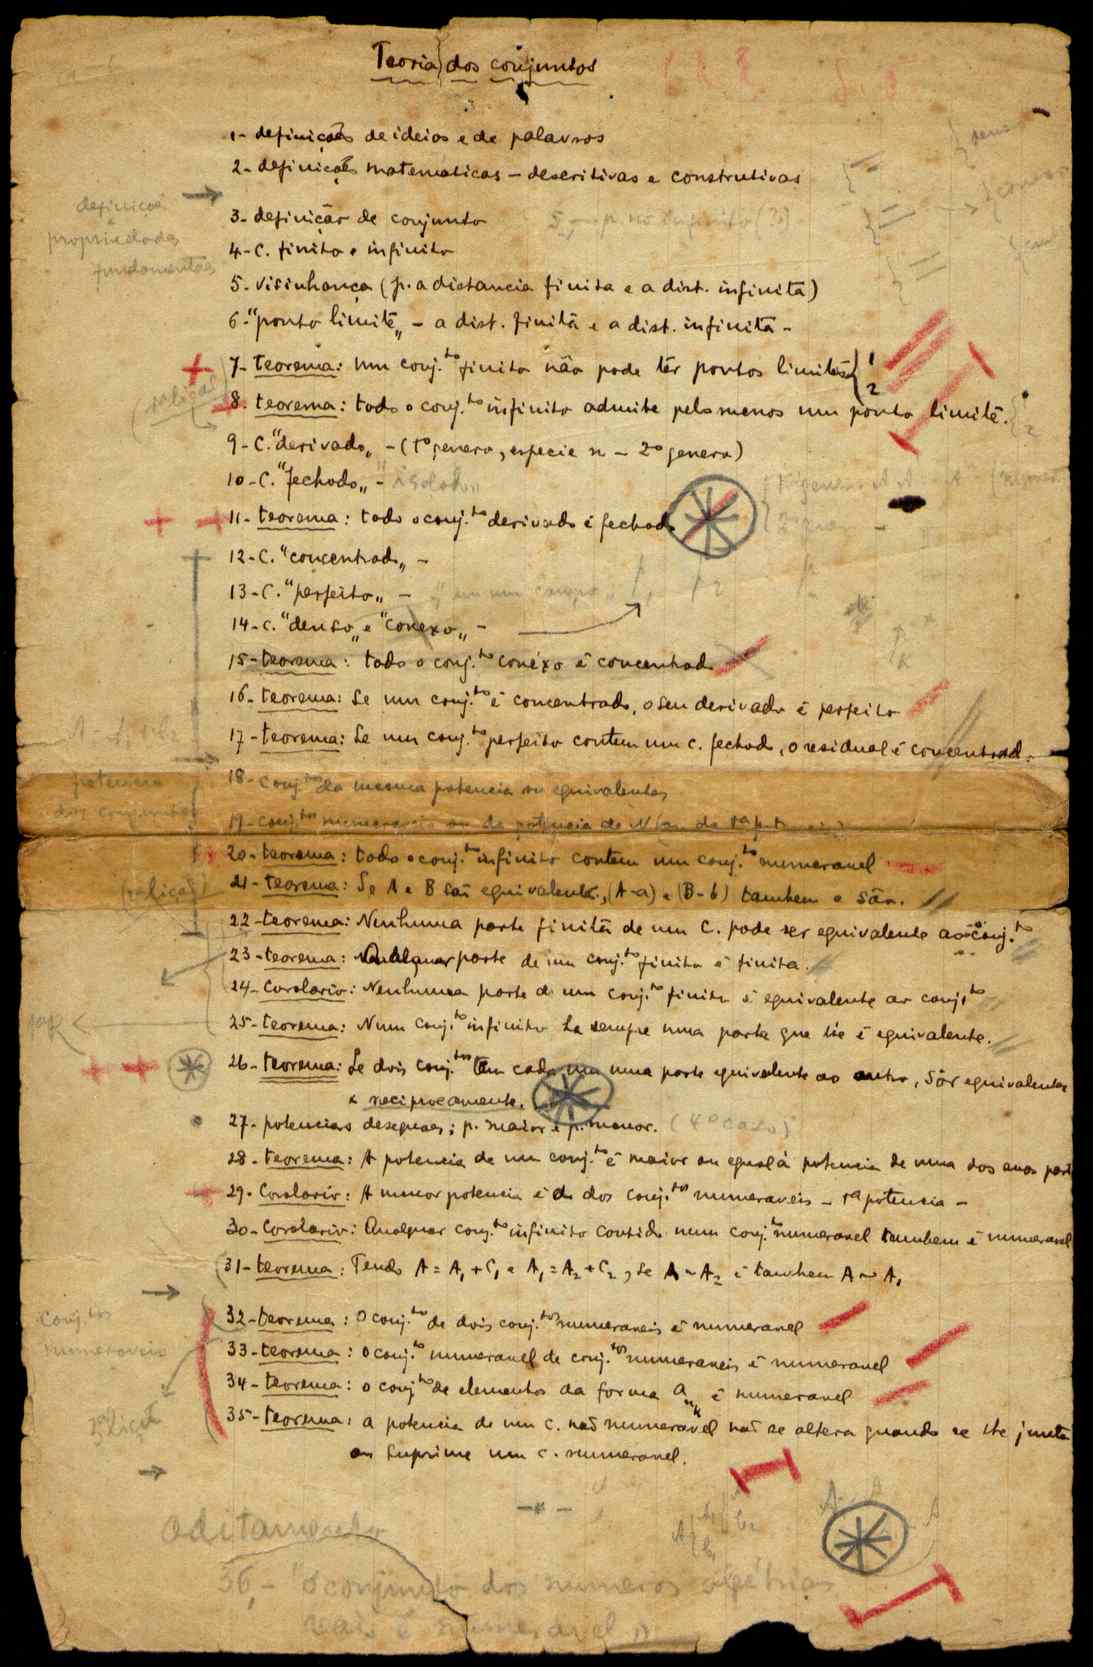 Teoria dos conjuntos
1- definições de ideias e de palavras
2- definições matematicas - descritivas e construtivas
definições
e
propriedades
fundamentaes
3- definição de conjunto
4- C. finito e infinito
5- visinhança (p. a distancia finita e a dist. infinita)
6- "ponto limite„ - a dist. finita e a dist. infinita -
7- teorema: um conj.to finito não pode têr pontos limites { 1 2
8- teorema: todo o conj.to infinito admite pelo menos um ponto limite.
9- C. "derivado„ - (1º genero, especie n - 2º genero)
10- C. "fechado„ - "isolado„
11- teorema: todo o conj.to derivado é fechado
12- C. "concentrado„ -
13- C. "perfeito„ -
14- C. "denso„ e "conexo„ -
15- teorema: todo o conj.to conéxo é concentrado
16- teorema: Se um conj.to é concentrado, o seu derivado é perfeito
17- teorema: Se um conj.to perfeito contem um c. fechado, o residual é concentrado.
potencia
dos conjuntos
18- conj.tos da mesma potencia ou equivalentes
19- conj.tos numeraveis ou da potencia de N (ou da 1ª potencia)
20- teorema: todo o conj.to infinito contem um conj.to numeravel
21- teorema: Se A e B são equivalentes, (A-a) e (B-b) tambem o são.
22- teorema: Nenhuma parte finita de um C. pode ser equivalente ao conj.to
23- teorema: Qualquer parte de um conj.to finito é finita.
24- Corolario: Nenhuma parte de um conj.to finito é equivalente ao conj.to
25- teorema: Num conj.to infinito ha sempre uma parte que lhe é equivalente.
26- teorema: Se dois conj.tos têm cada um uma parte equivalente ao outro, são equivalentes
e reciprocamente.
27- potencias deseguaes; p. maior e p. menor. (4º caso)
28- teorema: A potencia de um conj.to é maior ou egual á potencia de uma das suas partes
29- Corolario: A menor potencia é a dos conj.tos numeraveis - 1ª potencia -
30- Corolario: Qualquer conj.to infinito contido num conj.to numeravel tambem é numeravel
31- teorema: Tendo A = A₁ + C₁ e A₁ = A₂ + C₂, se A ~ A₂ é tambem A ~ A₁
Conj.tos
numeraveis
32- teorema: O conj.to de dois conj.tos numeraveis é numeravel
33- teorema: o conj.to numeravel de conj.tos numeraveis é numeravel
34- teorema: o conj.to de elementos da forma a n,k é numeravel
35- teorema: a potencia de um c. não numeravel não se altera quando se lhe junta
ou suprime um c. numeravel.
aditamento
36- "o conjunto dos numeros algébricos
reais é numeravel„